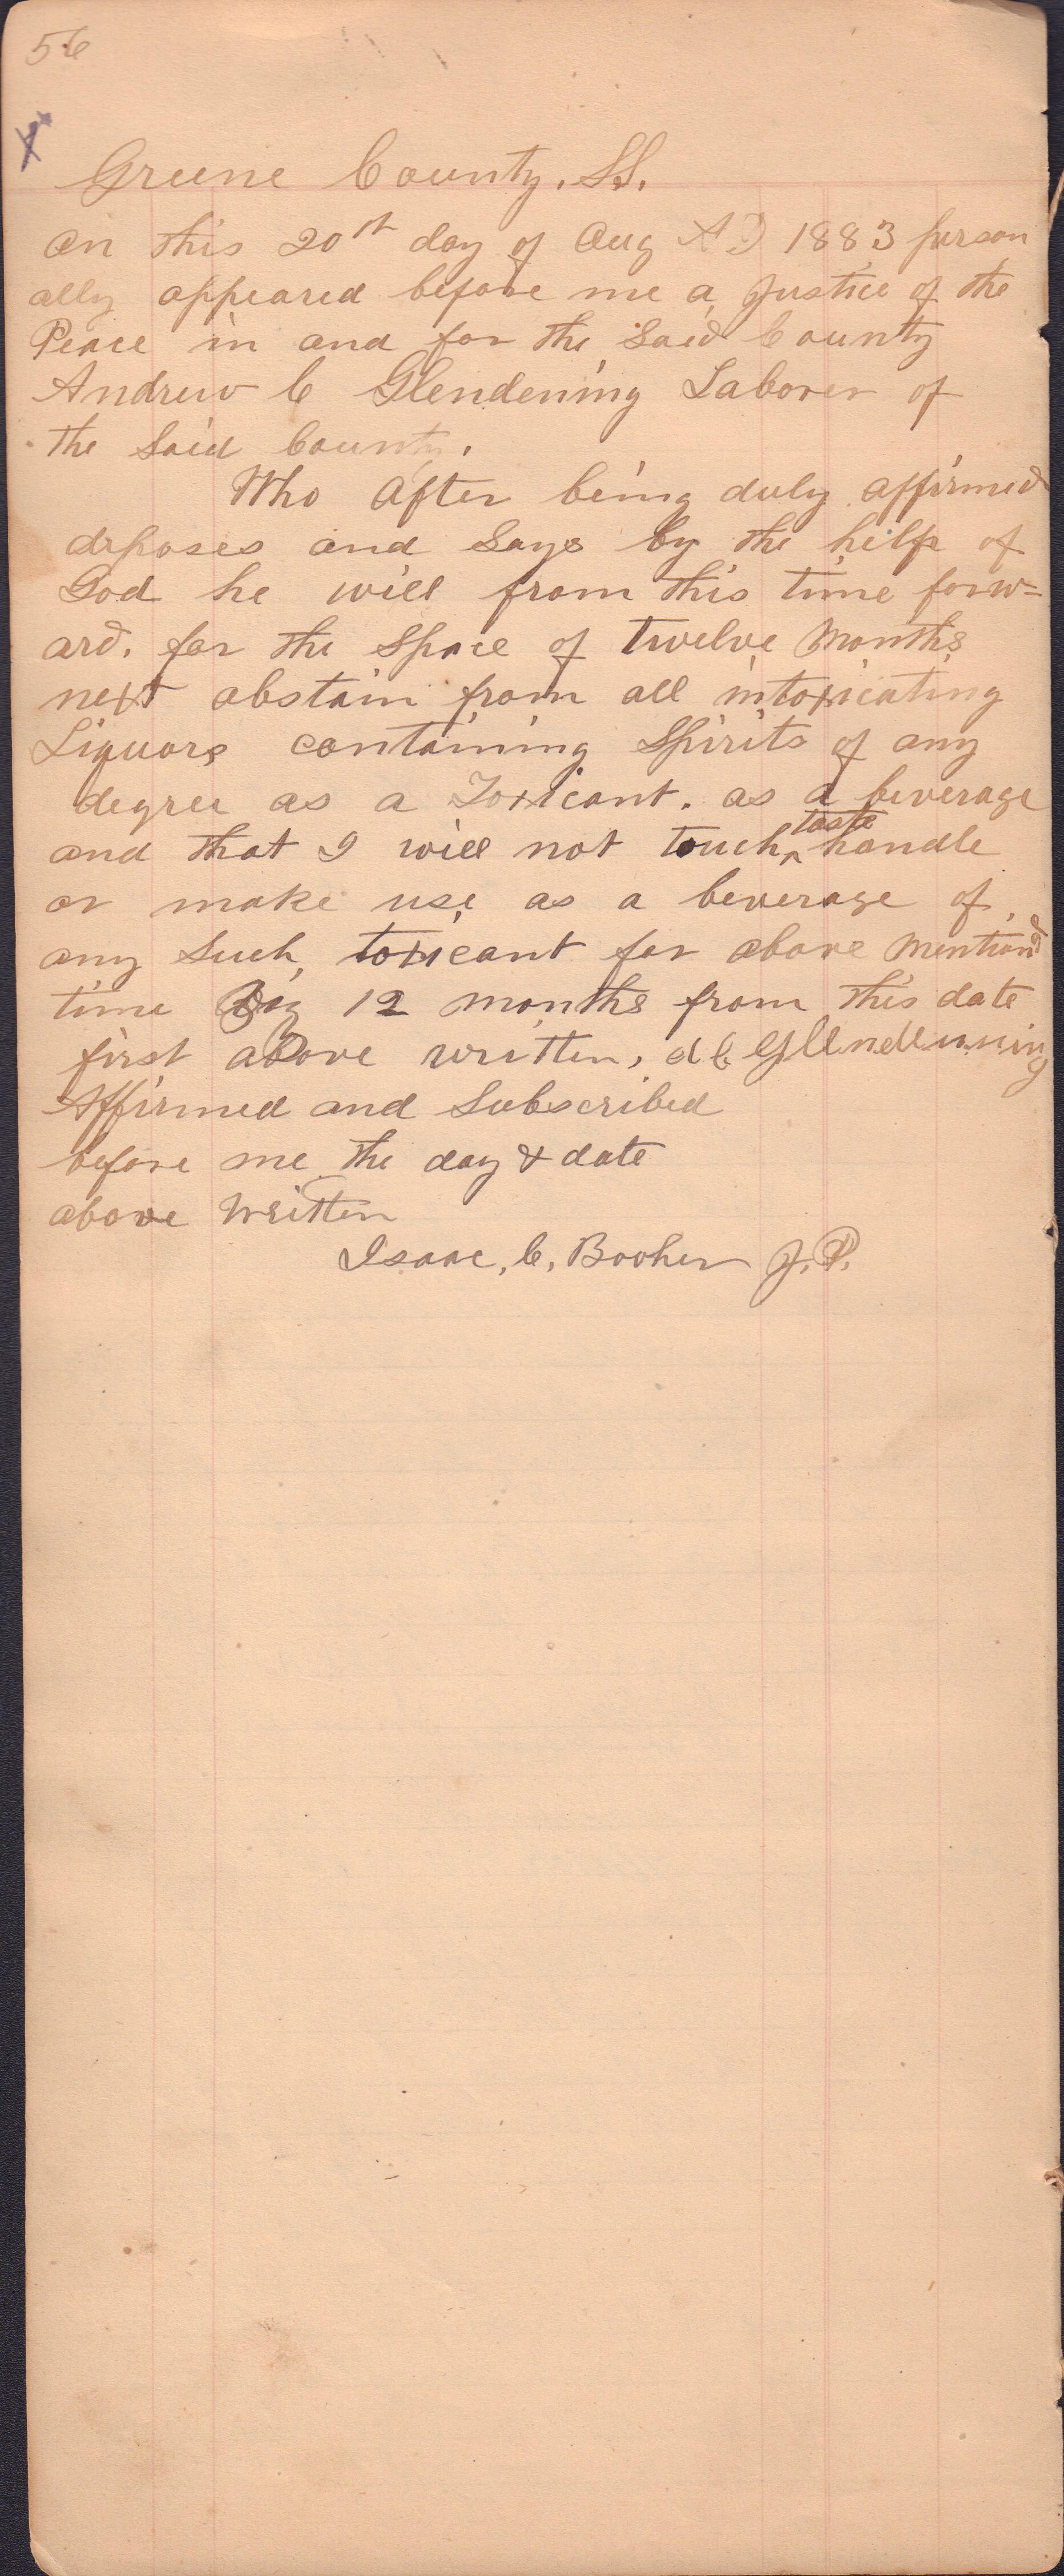 56
Greene County. SS.
On this 20th day of Aug AD 1883 person
ally appeared before me a Justice of the
Peace in and for the Said County
Andrew C Glendening Laborer of
the Said County.
Who After being duly affirmed
deposes and Says by the help of
God he will from this time forw=
ard. for the Space of twelve Months
next abstain from all intoxicating
Liquors containing Spirits of any
degree as a Toxicant. as a beverage
and that I will not touch, taste handle
or make use as a beverage of
any Such, toxicant for above Mentiond
time 12 months from this date
first above written, A C Glendenning
Affirmed and Subscribed
before me the day & date
above Written
Isaac, C, Booher J.P.